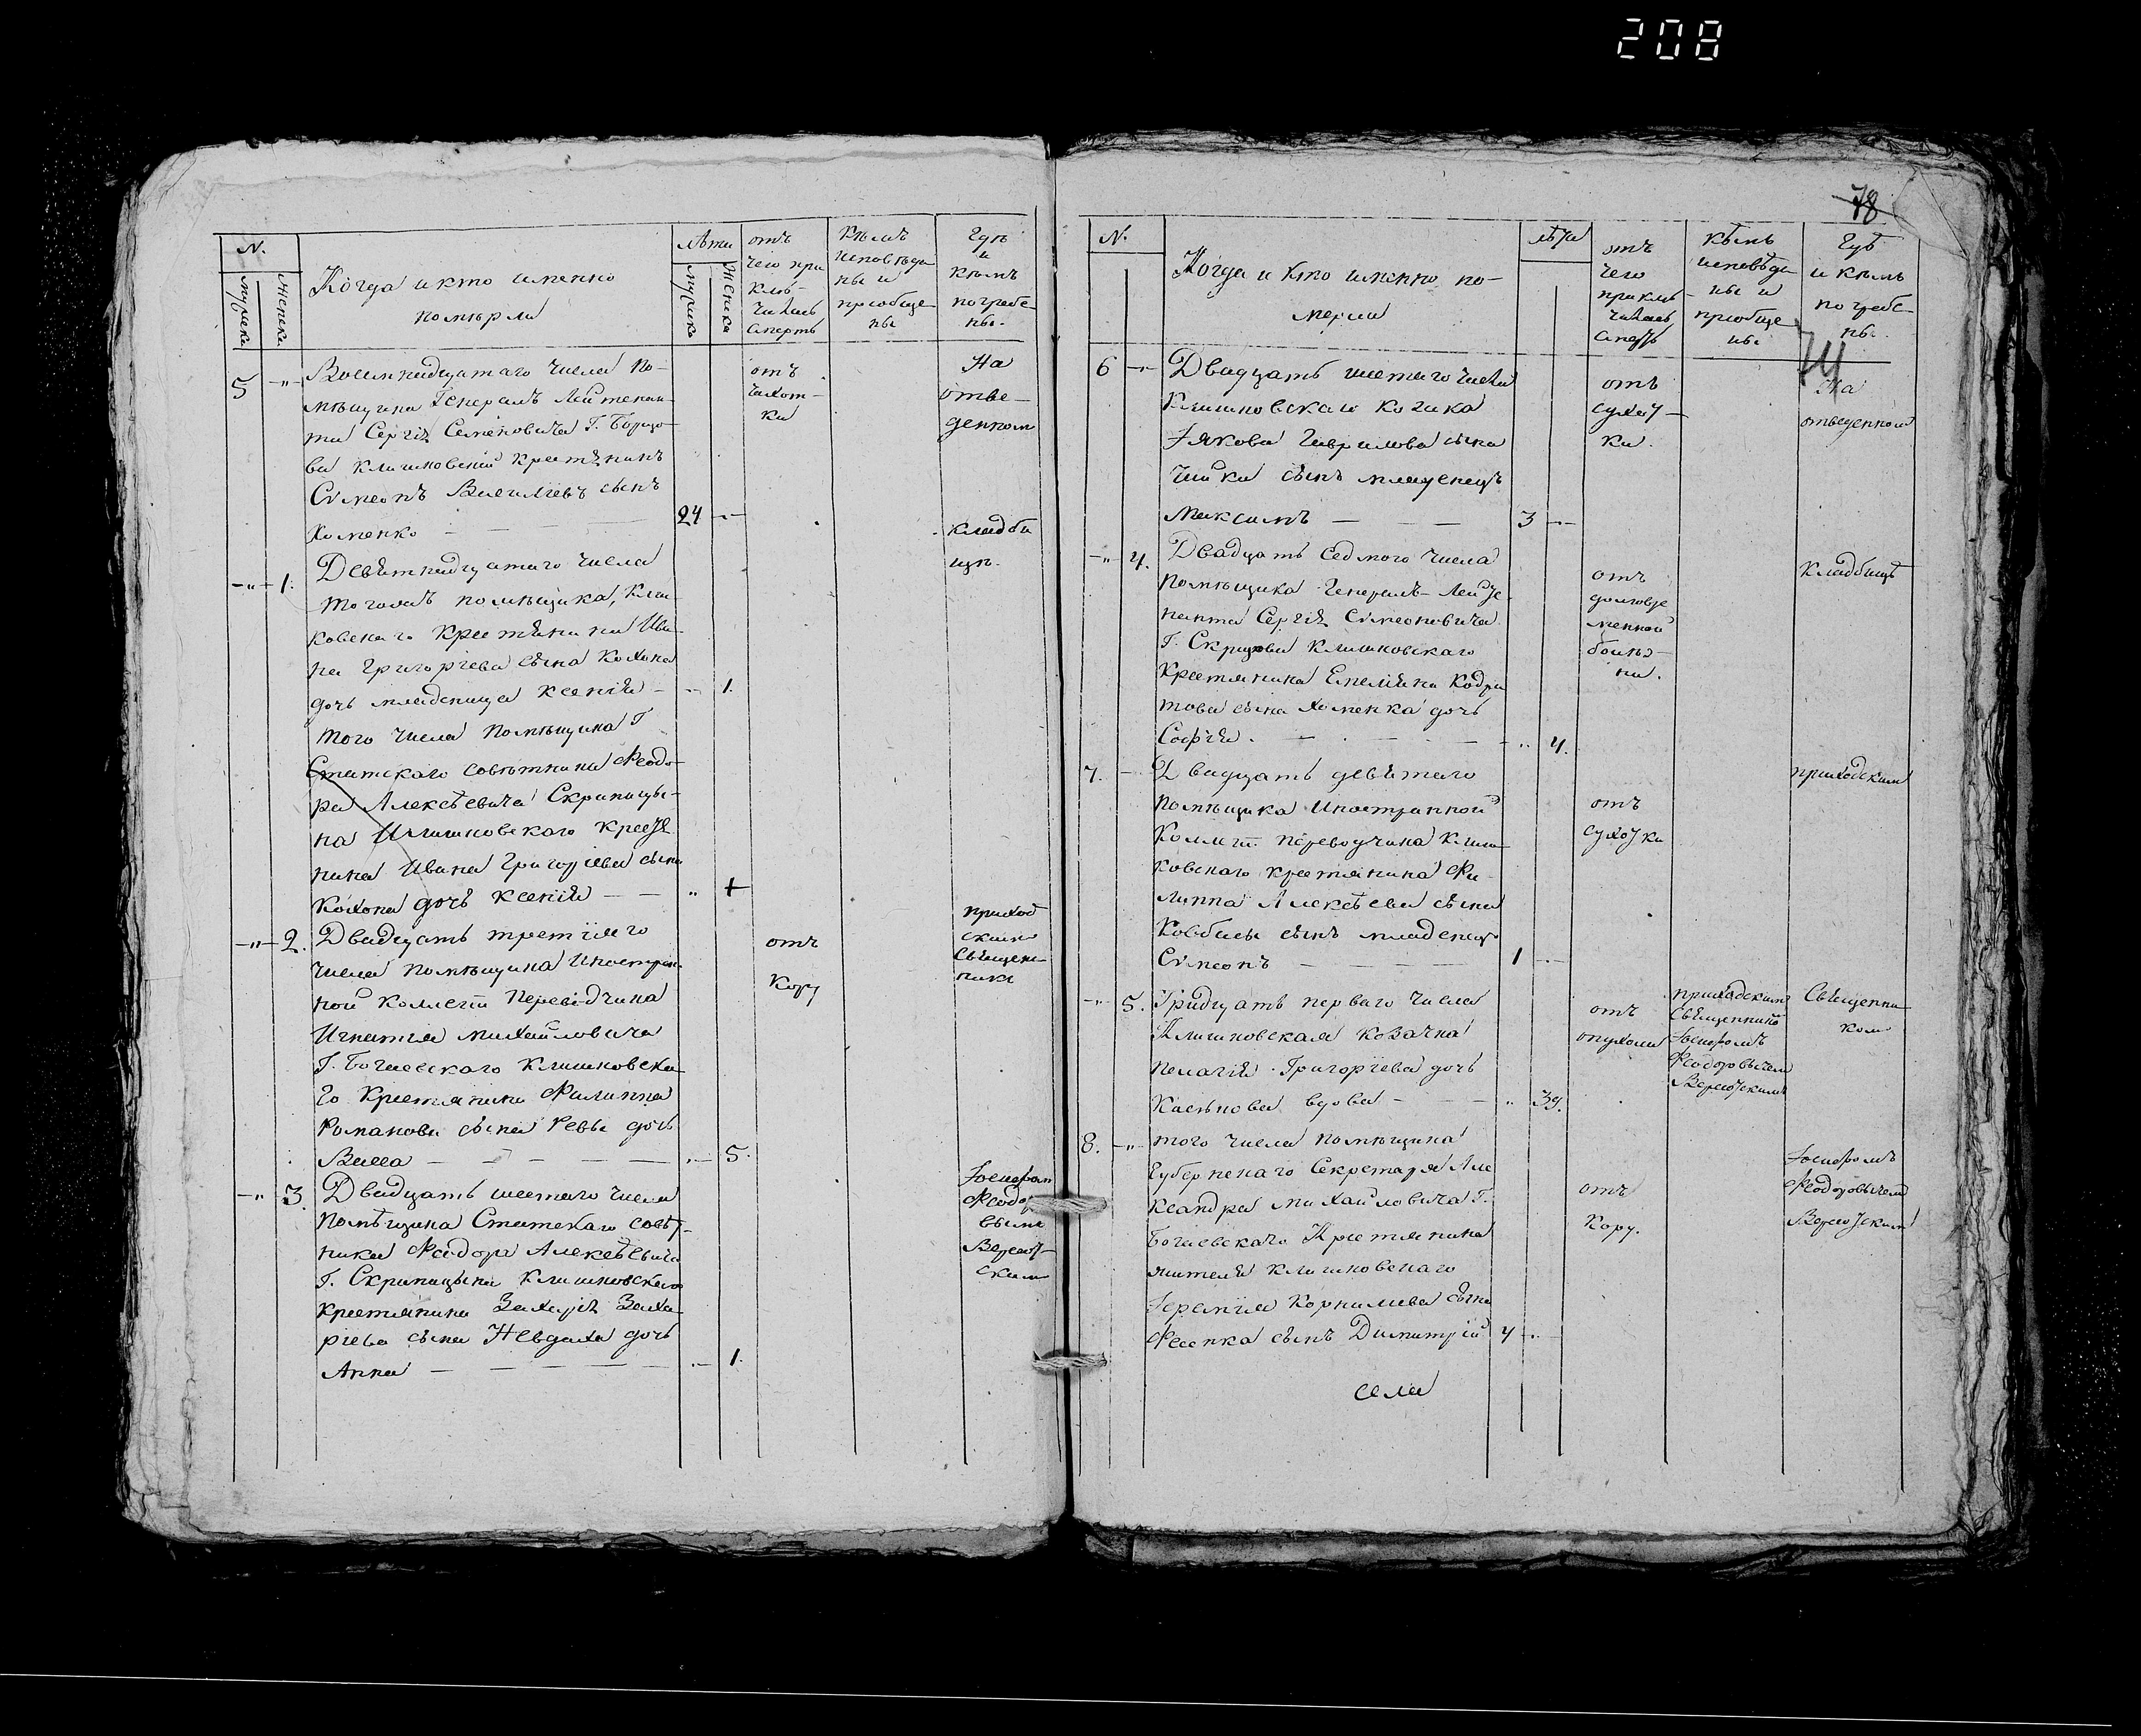 208
78
N.
Мужска
Женска
Когда и кто именно
померли
лѣта
Мужска
Женска
отъ
чего при
клю-
чилась
смерть
Кѣмъ
исповѣда
ны и
приобще
ны
Гдѣ
и
кѣмъ
погребе-
ны.
5 -"-
Восемнадцатаго числа по-
мѣщика Генералъ Лейтенан-
та Сергія Семеновича Г.
клишковскій крестянинъ
Симеонъ Василіевъ сынъ
Хоменко
24 -"-
отъ
чахот-
ки
На
отве-
денном
кладби
щѣ.
-"- 1.
Девятнадцатаго числа
тогожъ помѣщика, Клиш
ковскаго крестянина Ива
на Григоріева сына Кохона
дочь младеница Ксенія -
-"- 1.
того числа помѣщика Г
Статскаго совѣтника Феодо-
ра Алексѣевича Скрипицы-
на Клишковскаго крестя
нина Ивана Григоріева сына
Кохона дочь Ксенія — —
-"- 2.
Двадцать третіяго
числа помѣщика Иностран-
ной Коллегіи Переводчика
Игнатія Михайловича
Г. Богаевскаго Клишковска-
го Крестянина Филиппа
Романова сына Ревы дочь
Васса — — — —
5.
отъ
кору
приход
ским
Священ-
ником
-"- 3.
Двадцать шестаго числа
помѣщика Статскаго совѣт-
ника Феодора Алексѣевича
Г. Скрипицына Клишковскаго
крестянина Захарія Заха-
ріева сына Невдаха дочь
Анна — — — —
1.
Іосифом
Феодор
Верет-
ским
N.
Когда и кто именно по-
мерли
лѣта
отъ
чего
приклю-
чилась
смерть
кѣмъ
исповѣда
ны и
приобще
ны
Гдѣ
и кѣмъ
погребе-
ны.
6 -"-
Двадцать шестаго числа
Клишковскаго козака
Іякова Гаврилова сына
Чайки сынъ младенецъ
Максимъ — — —
3 -"-
отъ
сухот-
ки.
На
отведенном
-"- 4.
Двадцать седмого числа
помѣщика Генералъ-Лейте
нанта Сергія Симеоновича
Г. Клишковскаго
Крестянина Емеліяна Кодра
това сына Хоменка дочь
Софія.
-"- 4.
отъ
долговре
менной
болѣз-
ни.
кладбищѣ
7. -
Двадцать девятаго
помѣщика Иностранной
Коллегіи переводчика Клиш-
ковскаго крестянина Фи-
липпа Алексѣева сына
Ковбасы сынъ младенецъ
Симеонъ — — — —
1 -"-
отъ
сухотки
приходским
-"- 5.
Тридцать перваго числа
Клишковская козачка
Пелагія Григоріева дочь
Касянова вдова - — —
39.
отъ
опухоли
приходским
Священником
Іосифомъ
Феодоровичем
Веретским
Священни
ком
8. -"-
того числа помѣщика
Губернскаго Секретаря Але
ксандра Михайловича Г.
Богаевскаго Крестянина
жителя Клишковскаго
Іеремія Корнилева сына
Фесенка сынъ Димитрій
4 -"-
отъ
кору.
Іосифомъ
Феодоровичем
Веретским
села